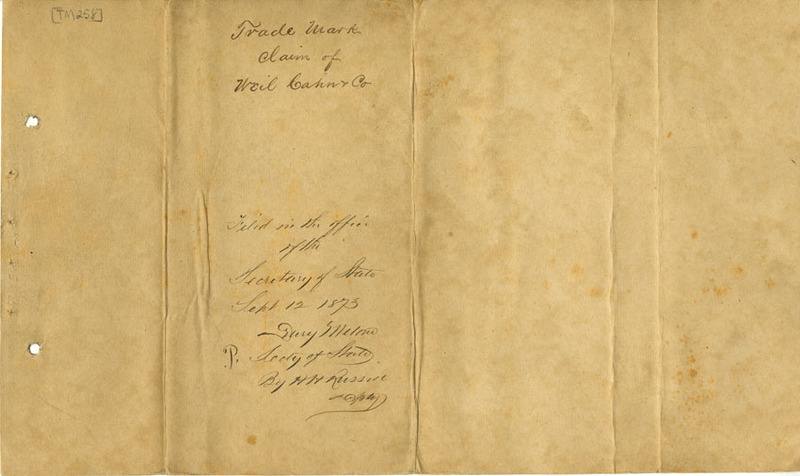 [TM258]
Trade Mark
Claim of
Weil Cahn & Co
Filed in the office
of the
Secretary of State
Sept 12 1873
Drury Melone
P. Secty of State
By H H Russell
Dpty